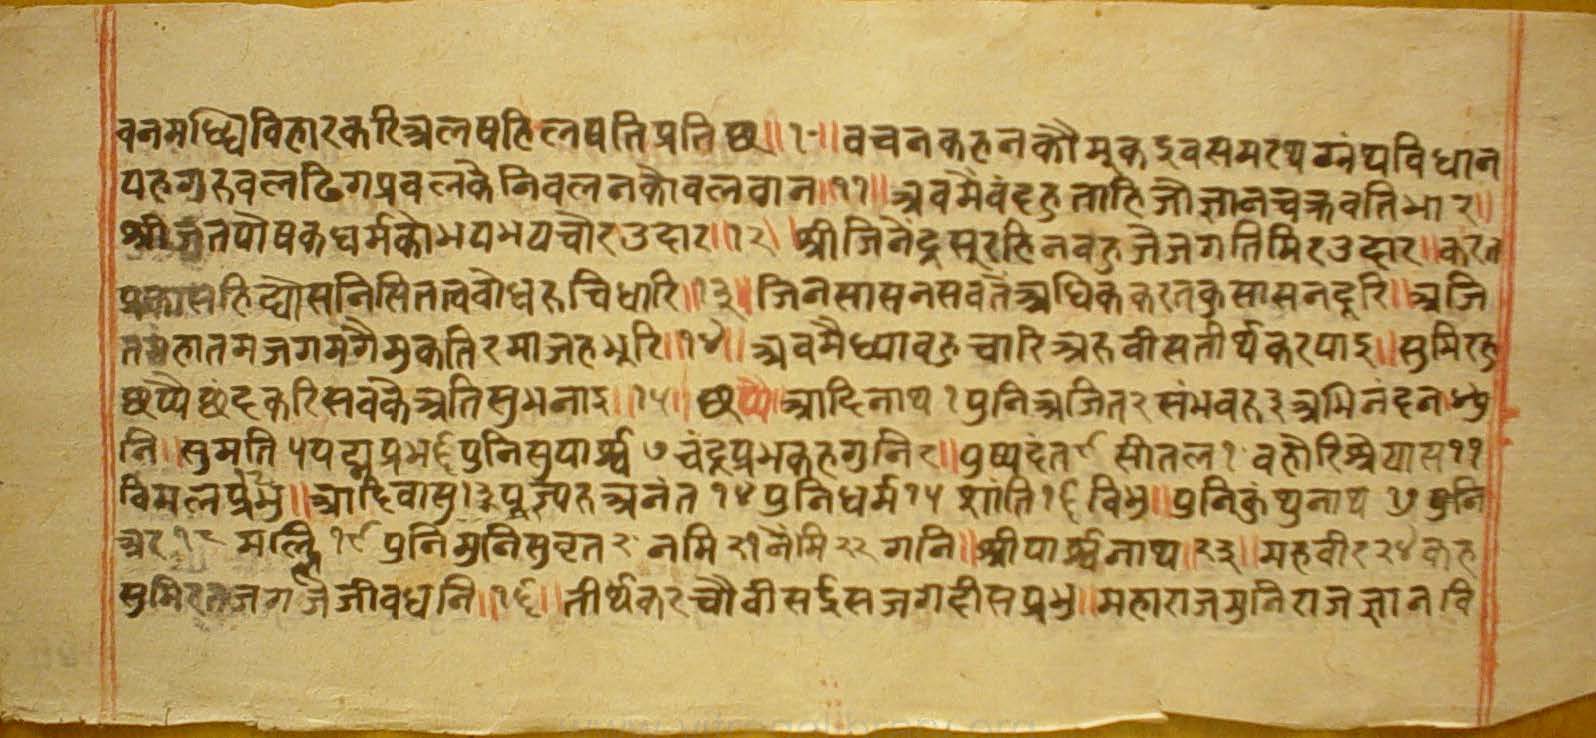 वनमध्यिविहारकरिअलषहिलषतिप्रतिछ॥१०॥वचनकहनकौमूकइवसमरथग्रंथविधान
यहगुरुवलढिगप्रवलकैनिवलनकौवलवान॥११॥अवमैवंदहुताहिजौज्ञानचक्रवतिभार॥
श्रीजुतपौषकधर्मकौभयमयचौरउदार॥१२॥श्रीजिनेंद्रसूरहिनवहुजैजगतिमिरउदार॥करत
प्रकासहिद्यौसनिसितत्ववौधरुचिधारि॥१३॥जिनसासनसवतैंअधिककरतकुसासनदूरि॥अजि
तमहातमजगमगैमुकतिरमाजहभूरि॥१४॥अवमैध्यावहुचारिअरुवीसतीर्थकरपाइ॥सुमिरहु
छप्पैछंदकरिसवकैअतिसुभनाइ॥१५॥छप्पै॥आदिनाथ१पुनिअजित२संभवरु३अभिनंदन४पु
नि॥सुमति५पद्मप्रभ६पुनिसुपार्श्व७चंद्रप्रभकहगुनि८॥पुष्पदंत९सीतल१०वहौरिश्रेयास११
विमलप्रभु१३॥आदिवासु१२पूज्यरुअनंत१४पुनिधर्म१५शांति१६विभु॥पुनिकुंथुनाथ१७पुनि
अर१८मल्लि१९पुनिमुनिसुव्रत२०नमि२१नेमि२२गनि॥श्रीपार्श्वनाथ॥२३॥महवीर२४कह
सुमिरतजगजैजीवधनि॥१६॥तीर्थकरचौवीसईसजगदीसप्रभु॥महाराजमुनिराजज्ञानवि